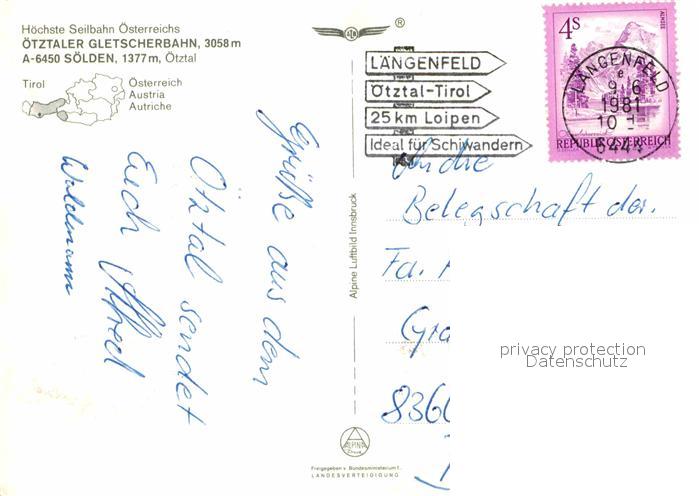 Höchste Seilbahn Österreichs
ÖTZTALER GLETSCHERBAHN, 3058 m
A-6450 SÖLDEN, 1377 m, Ötztal
Tirol
Österreich
Austria
Autriche
Grüße aus dem
Ötztal sendet
Euch Alfred
Alpine Luftbild Innsbruck
ALPINA
Druck
Freigegeben v. Bundesministerium f.
LANDESVERTEIDIGUNG
®
LÄNGENFELD
Ötztal-Tirol
25 km Loipen
Ideal für Schiwandern
4S
ALMSEE
REPUBLIK ÖSTERREICH
LÄNGENFELD
e
9. 6
1981
10
6444
An die
Belegschaft der.
Fa.
Gra
8360
privacy protection
Datenschutz